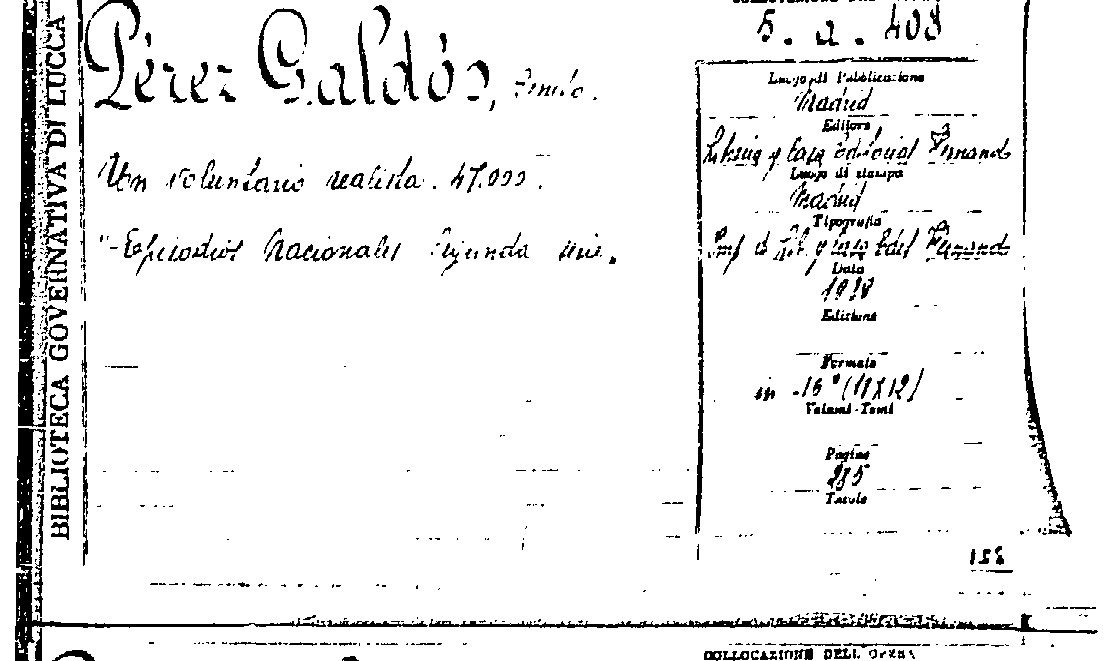 BIBLIOTECA GOVERNATIVA DI LUCCA
5. a. 408
Pérez Galdós, Benito.
Un voluntario realista. 47.000.
"-Episodios Nacionales Segunda serie.
Luogo di Pubblicazione
Madrid
Editore
Libreria y Casa Editorial Hernando
Luogo di stampa
Madrid
Tipografia
Imp. de Lib. y Casa Edit. Hernando
Data
Edizione
Formato
in -16° (17X12)
Volumi-Tomi
Pagine
285
Tavole
COLLOCAZIONE DELL'OPERA